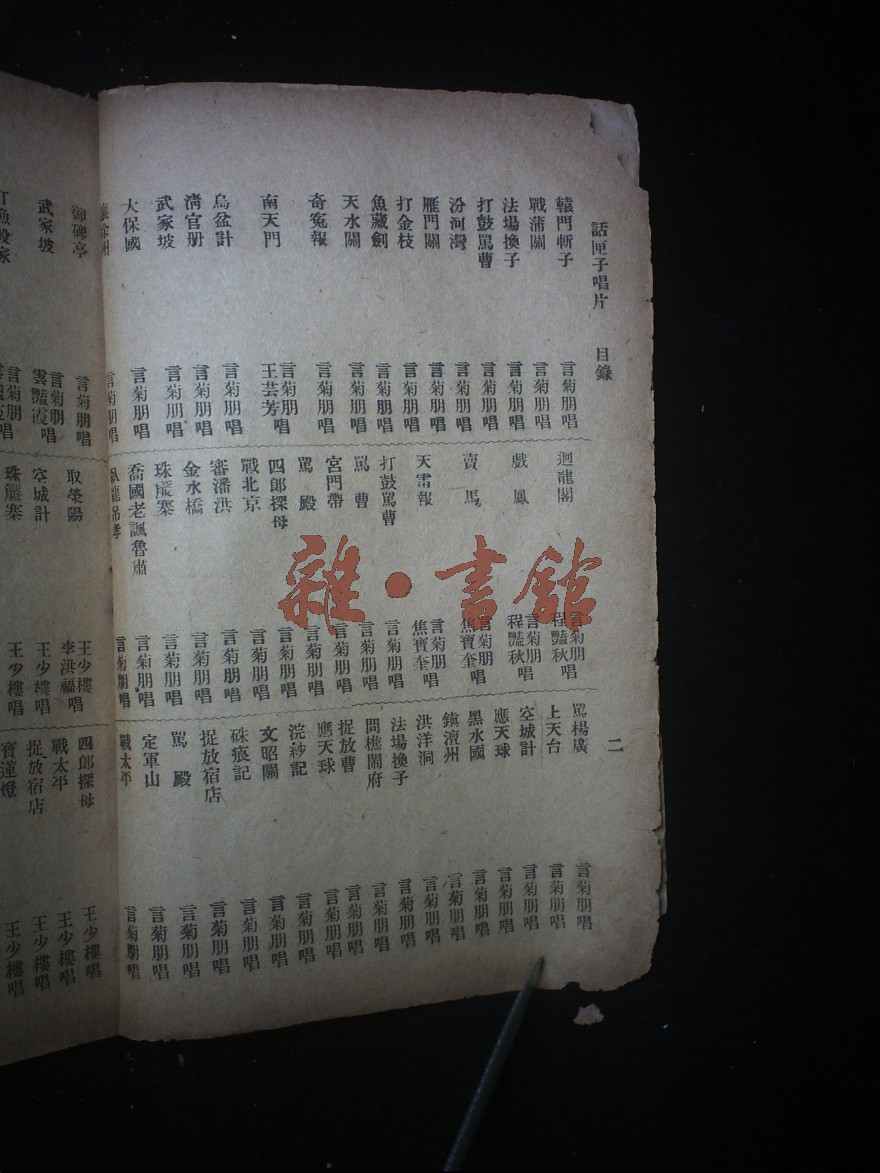 話匣子唱片 目錄 二
轅門斬子 言菊朋唱
戰蒲關 言菊朋唱
法場換子 言菊朋唱
打鼓罵曹 言菊朋唱
汾河灣 言菊朋唱
雁門關 言菊朋唱
打金枝 言菊朋唱
魚藏劍 言菊朋唱
天水關 言菊朋唱
奇冤報 言菊朋唱
南天門 言菊朋 王芸芳唱
烏盆計 言菊朋唱
清官册 言菊朋唱
武家坡 言菊朋唱
大保國 言菊朋唱
言菊朋唱
迴龍閣 言菊朋 程豔秋唱
戲鳳 言菊朋 程豔秋唱
賣馬 言菊朋 焦寶奎唱
天雷報 言菊朋 焦寶奎唱
打鼓罵曹 言菊朋唱
罵曹 言菊朋唱
宮門帶 言菊朋唱
罵殿 言菊朋唱
四郎探母 言菊朋唱
戰北京 言菊朋唱
審潘洪 言菊朋唱
金水橋 言菊朋唱
珠簾寨 言菊朋唱
喬國老諷魯肅 言菊朋唱
臥龍吊孝 言菊朋唱
罵楊廣 言菊朋唱
上天台 言菊朋唱
空城計 言菊朋唱
應天球 言菊朋唱
黑水國 言菊朋唱
鎮澶州 言菊朋唱
洪洋洞 言菊朋唱
法場換子 言菊朋唱
問樵鬧府 言菊朋唱
捉放曹 言菊朋唱
應天球 言菊朋唱
浣紗記 言菊朋唱
文昭關 言菊朋唱
硃痕記 言菊朋唱
捉放宿店 言菊朋唱
罵殿 言菊朋唱
定軍山 言菊朋唱
戰太平 言菊朋唱
御碑亭 言菊朋唱
武家坡 言菊朋 雲豔霞唱
打漁殺家 言菊朋
取滎陽 王少樓 李洪福唱
空城計 王少樓唱
珠簾寨 王少樓唱
四郎探母 王少樓唱
戰太平 王少樓唱
捉放宿店 王少樓唱
寶蓮燈 王少樓唱
雜·書館